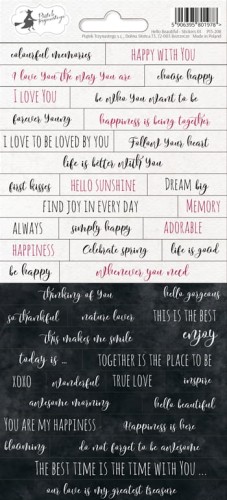 5 906395 801978 >
Hello Beautiful - Stickers 01 P13-298
colourful memories HAPPY WITH YOU
I love You the way You are choose happy
I LOVE YOU be who You want to be
forever Young happiness is being together
I LOVE TO BE LOVED BY YOU Follow Your heart
life is better with You
first kisses HELLO SUNSHINE DREAM big
FIND JOY IN EVERY DAY MEMORY
ALWAYS simply happy ADORABLE
HAPPINESS Celebrate spring life is good
be happy Whenever you need
thinking of You hello gorgeous
so thankful nature lover THIS IS THE BEST
this makes me smile enjoy
today is ... TOGETHER IS THE PLACE TO BE
XOXO wonderful TRUE LOVE inspire
awesome morning hello beautiful
YOU ARE MY HAPPINESS Happiness is here
blooming do not forget to be awesome
THE BEST TIME IS THE TIME WITH YOU ...
our love is my greatest treasure